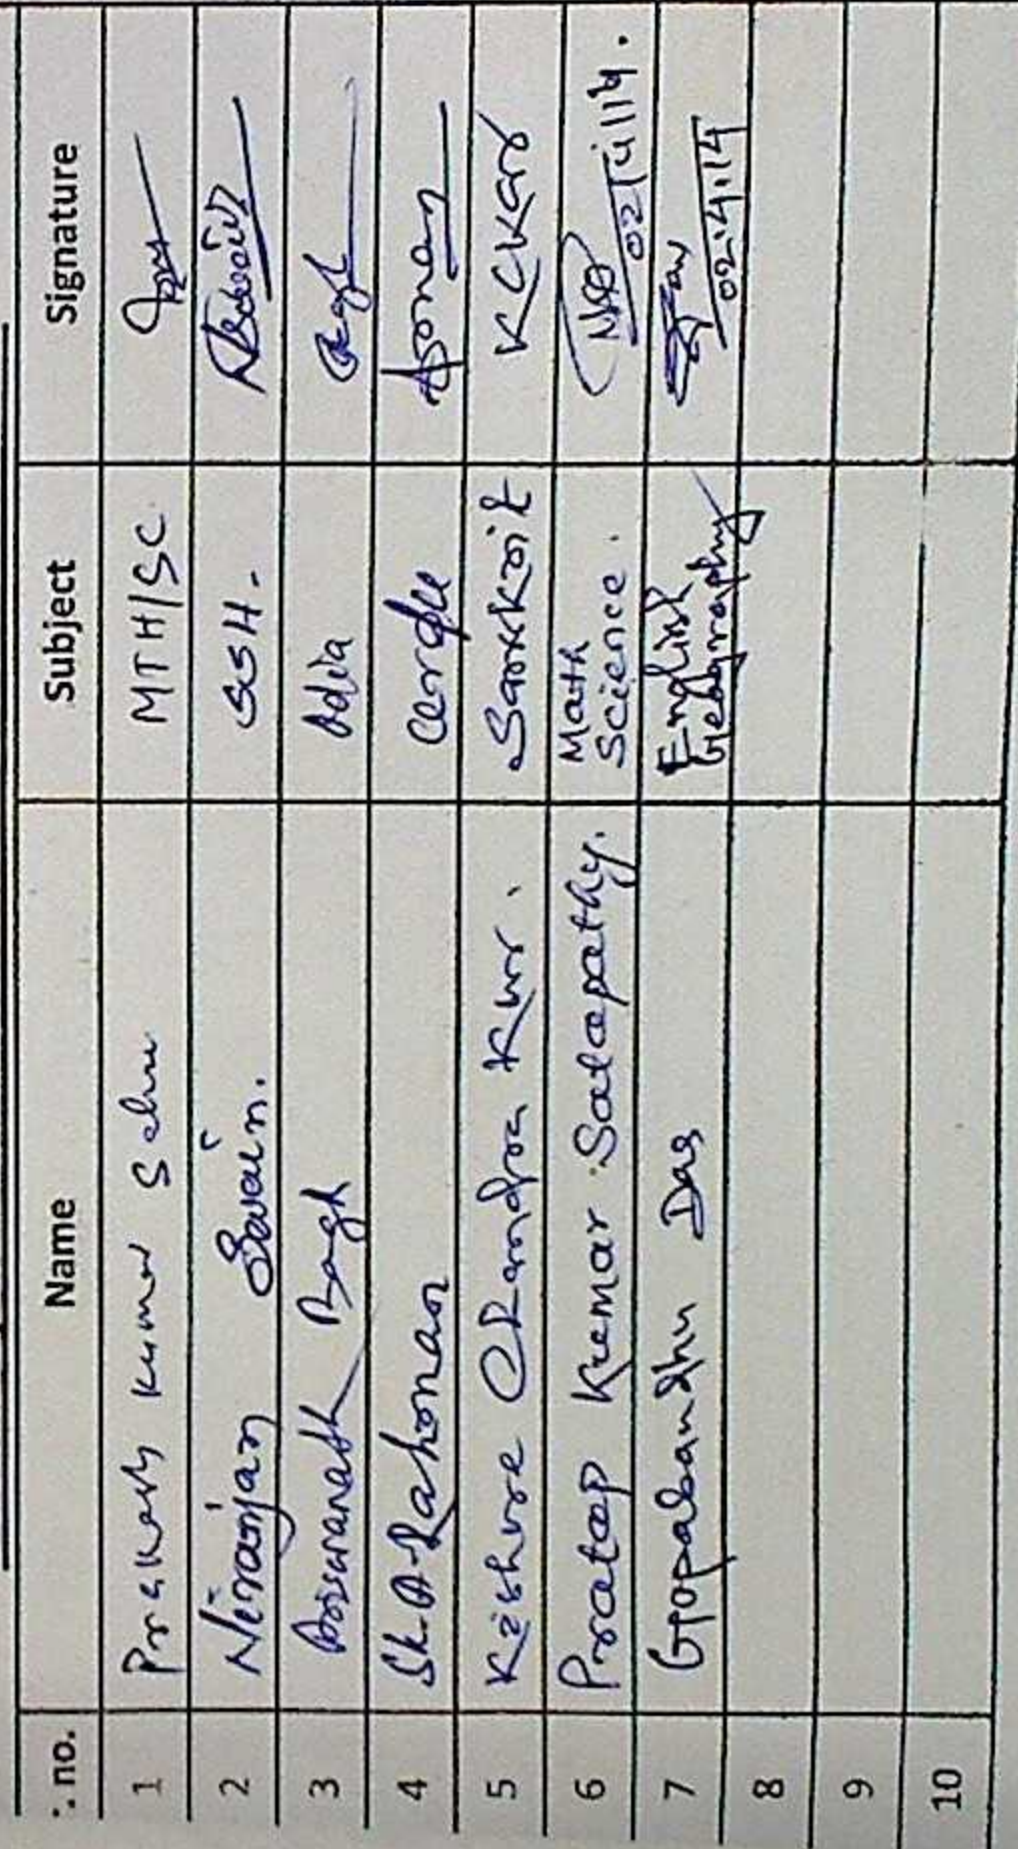 . no. Name Subject Signature
1 Prakash Kumar Sahu MTH/SC
2 Niranjan Swain. SSH.
3 Biswanath Bagh Odia
4 Sk. A. Rahaman
5 Kishore Chandra Kar. Sanskrit KCKar
6 Pratap Kumar Satapathy. Math
Science. 02/4/14.
7 Gopabandhu Das English
Geography 02.4.14
8
9
10